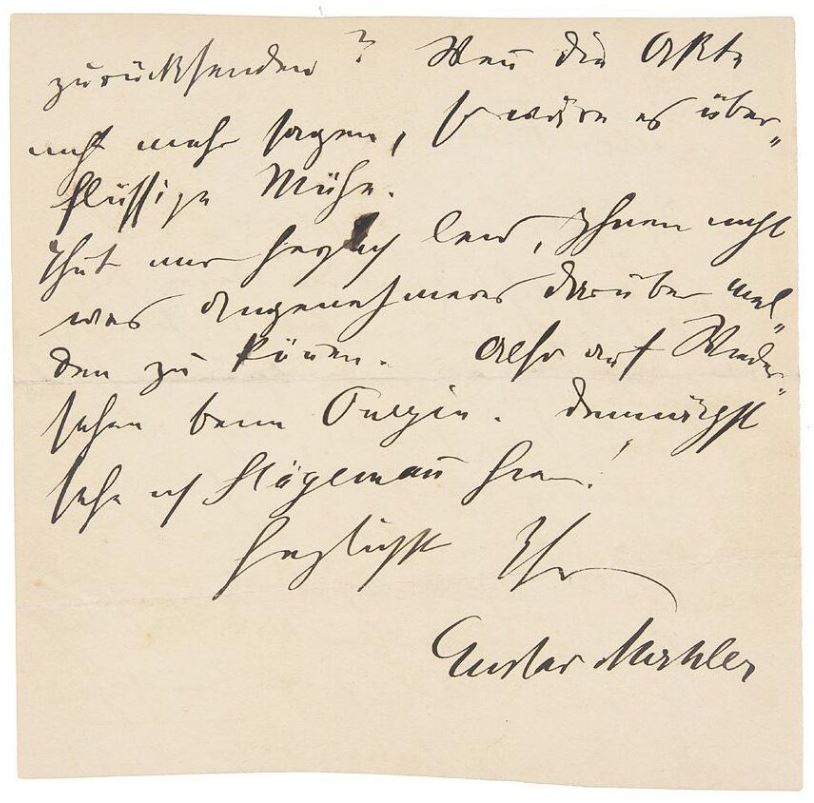 zurücksenden? Wen̄ die Akte
nicht mehr sagen, so wäre es über„
flüssige Mühe.
Thut mir herzlich leid, Ihnen nicht
was angenehmeres darüber mel„
den zu kön̄en. Also auf Wieder„
sehen beim demnächst
sehe ich Stägeman̄ hier!
Herzlichst Ihr
Gustav Mahler